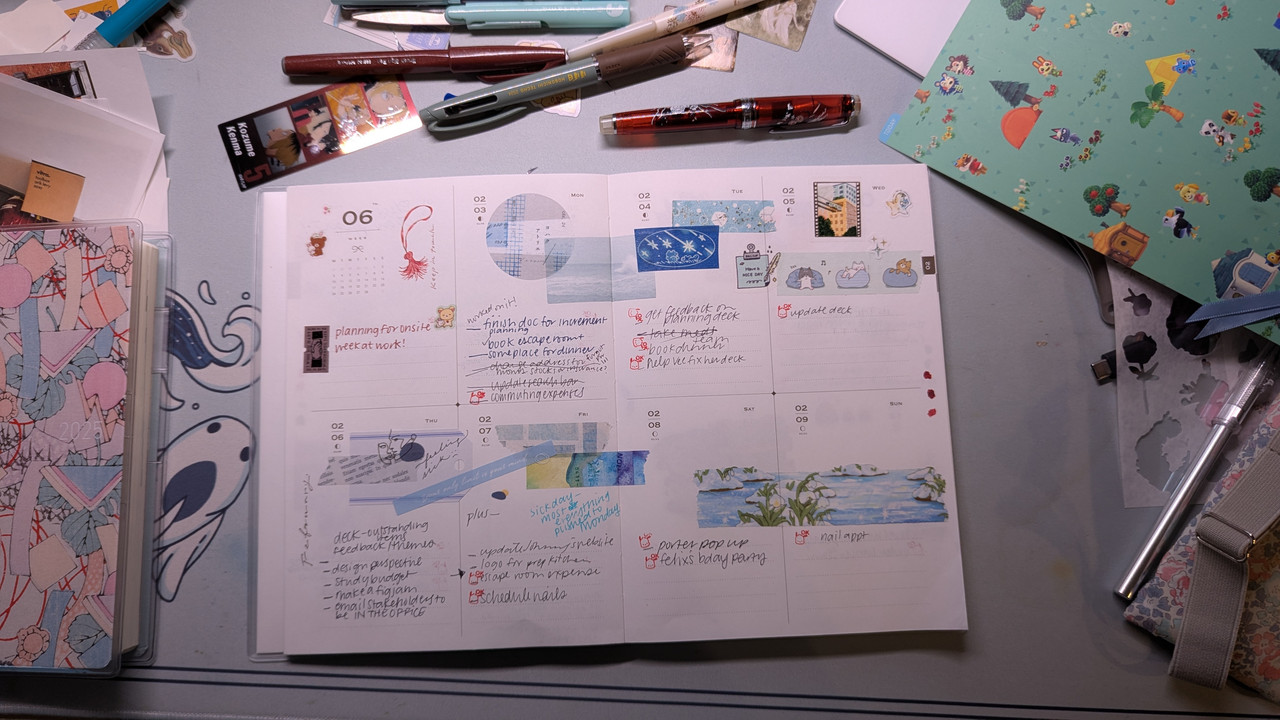 Kozume
Kenma
5
2025
06
WEEK
planning for onsite
week at work!
02
03
MON
worked on it!
finish doc for increment
planning
book escape room +
someplace for dinner
commuting expenses
02
04
TUE
Have a
NICE DAY
get feedback on
planning deck
team
book dinner
help vee fix her deck
02
05
WED
update deck
02
06
THU
feeling
sick-
deck-outstanding
items
feedback/themed
- design perspective
- study budget
- make a figjam
- email stakeholders to
be IN THE OFFICE
02
07
FRI
plus-
sick day-
most
everything
pushed to
Monday
- logo for prep kitchen
escape room expense
schedule nails
02
08
SAT
porter pop up
felix's bday party
02
09
SUN
nail appt